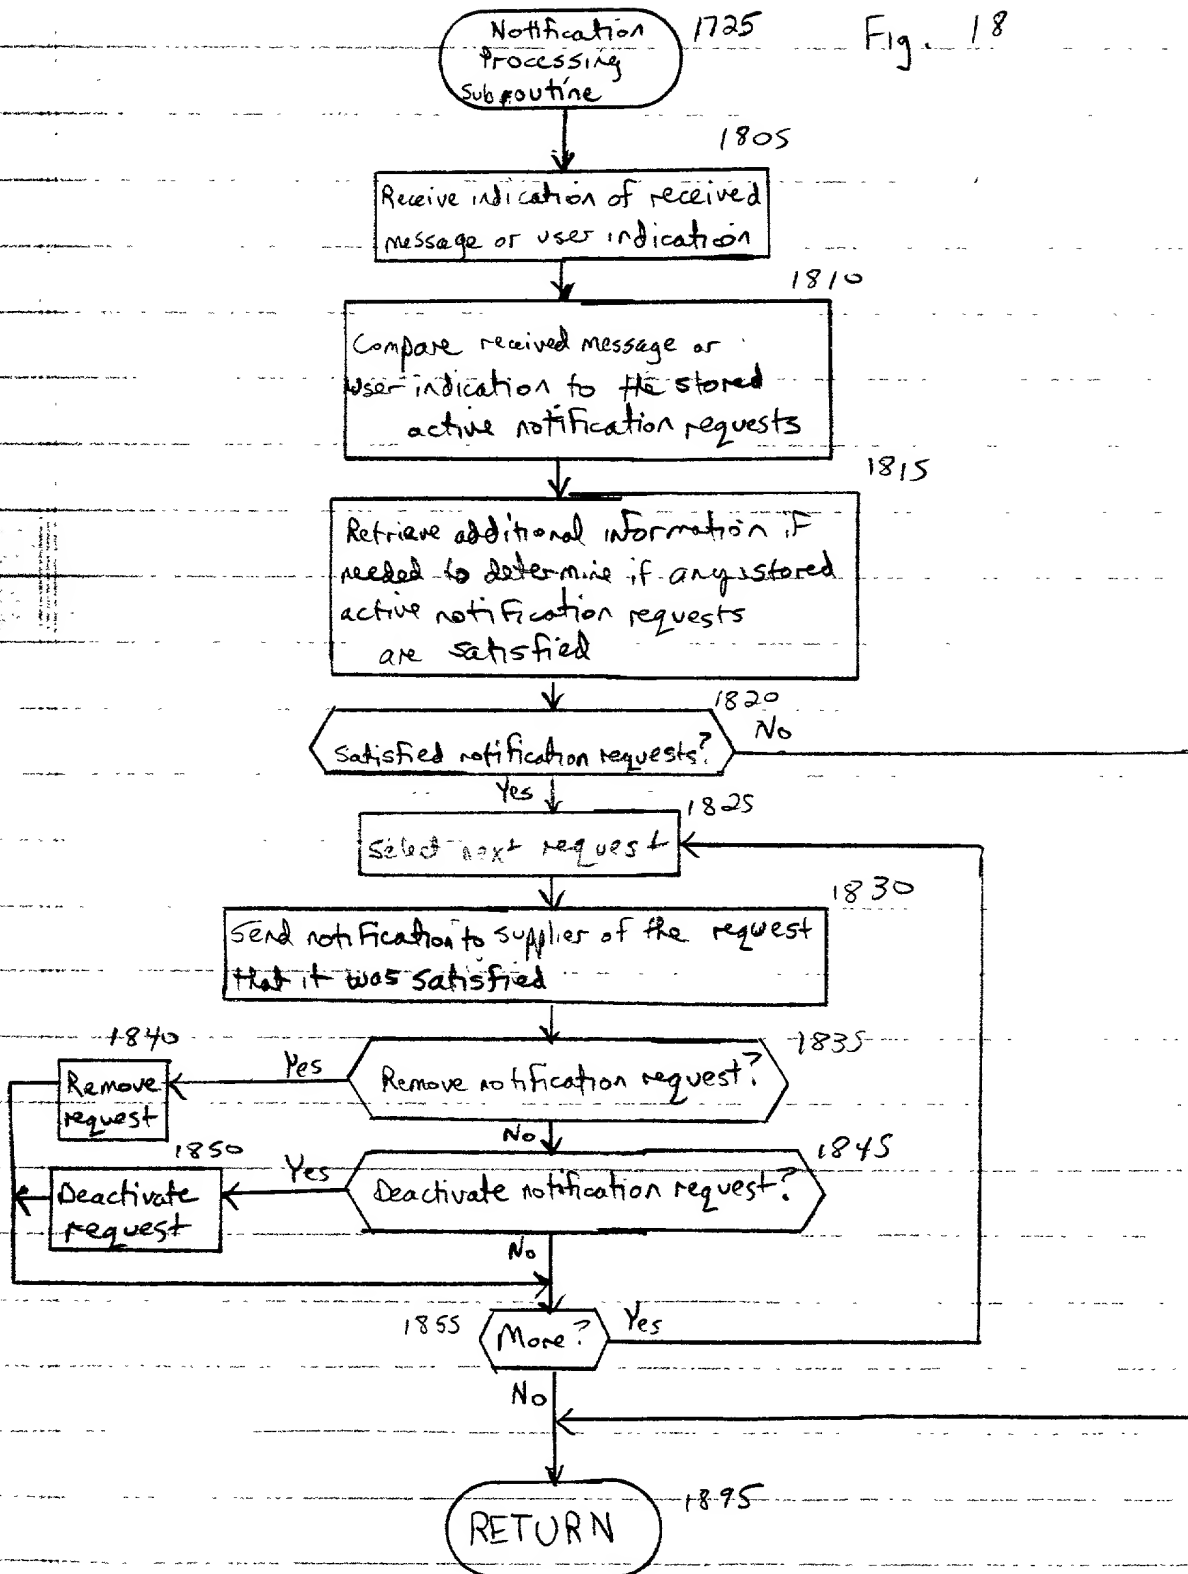 Notification 1725 Fig. 18
Processing
Subroutine
1805
Receive indication of received
message or user indication
1810
Compare received message or
user indication to the stored
active notification requests
1815
Retrieve additional information if
needed to determine if any stored
active notification requests
are satisfied
1820
Satisfied notification requests? No
Yes
1825
Select next request
1830
Send notification to supplier of the request
that it was satisfied
1840
1835
Remove notification request?
Yes
Remove
request
No
1850
1845
Deactivate notification request?
Yes
Deactivate
request
No
1855 More? Yes
No
1895
RETURN